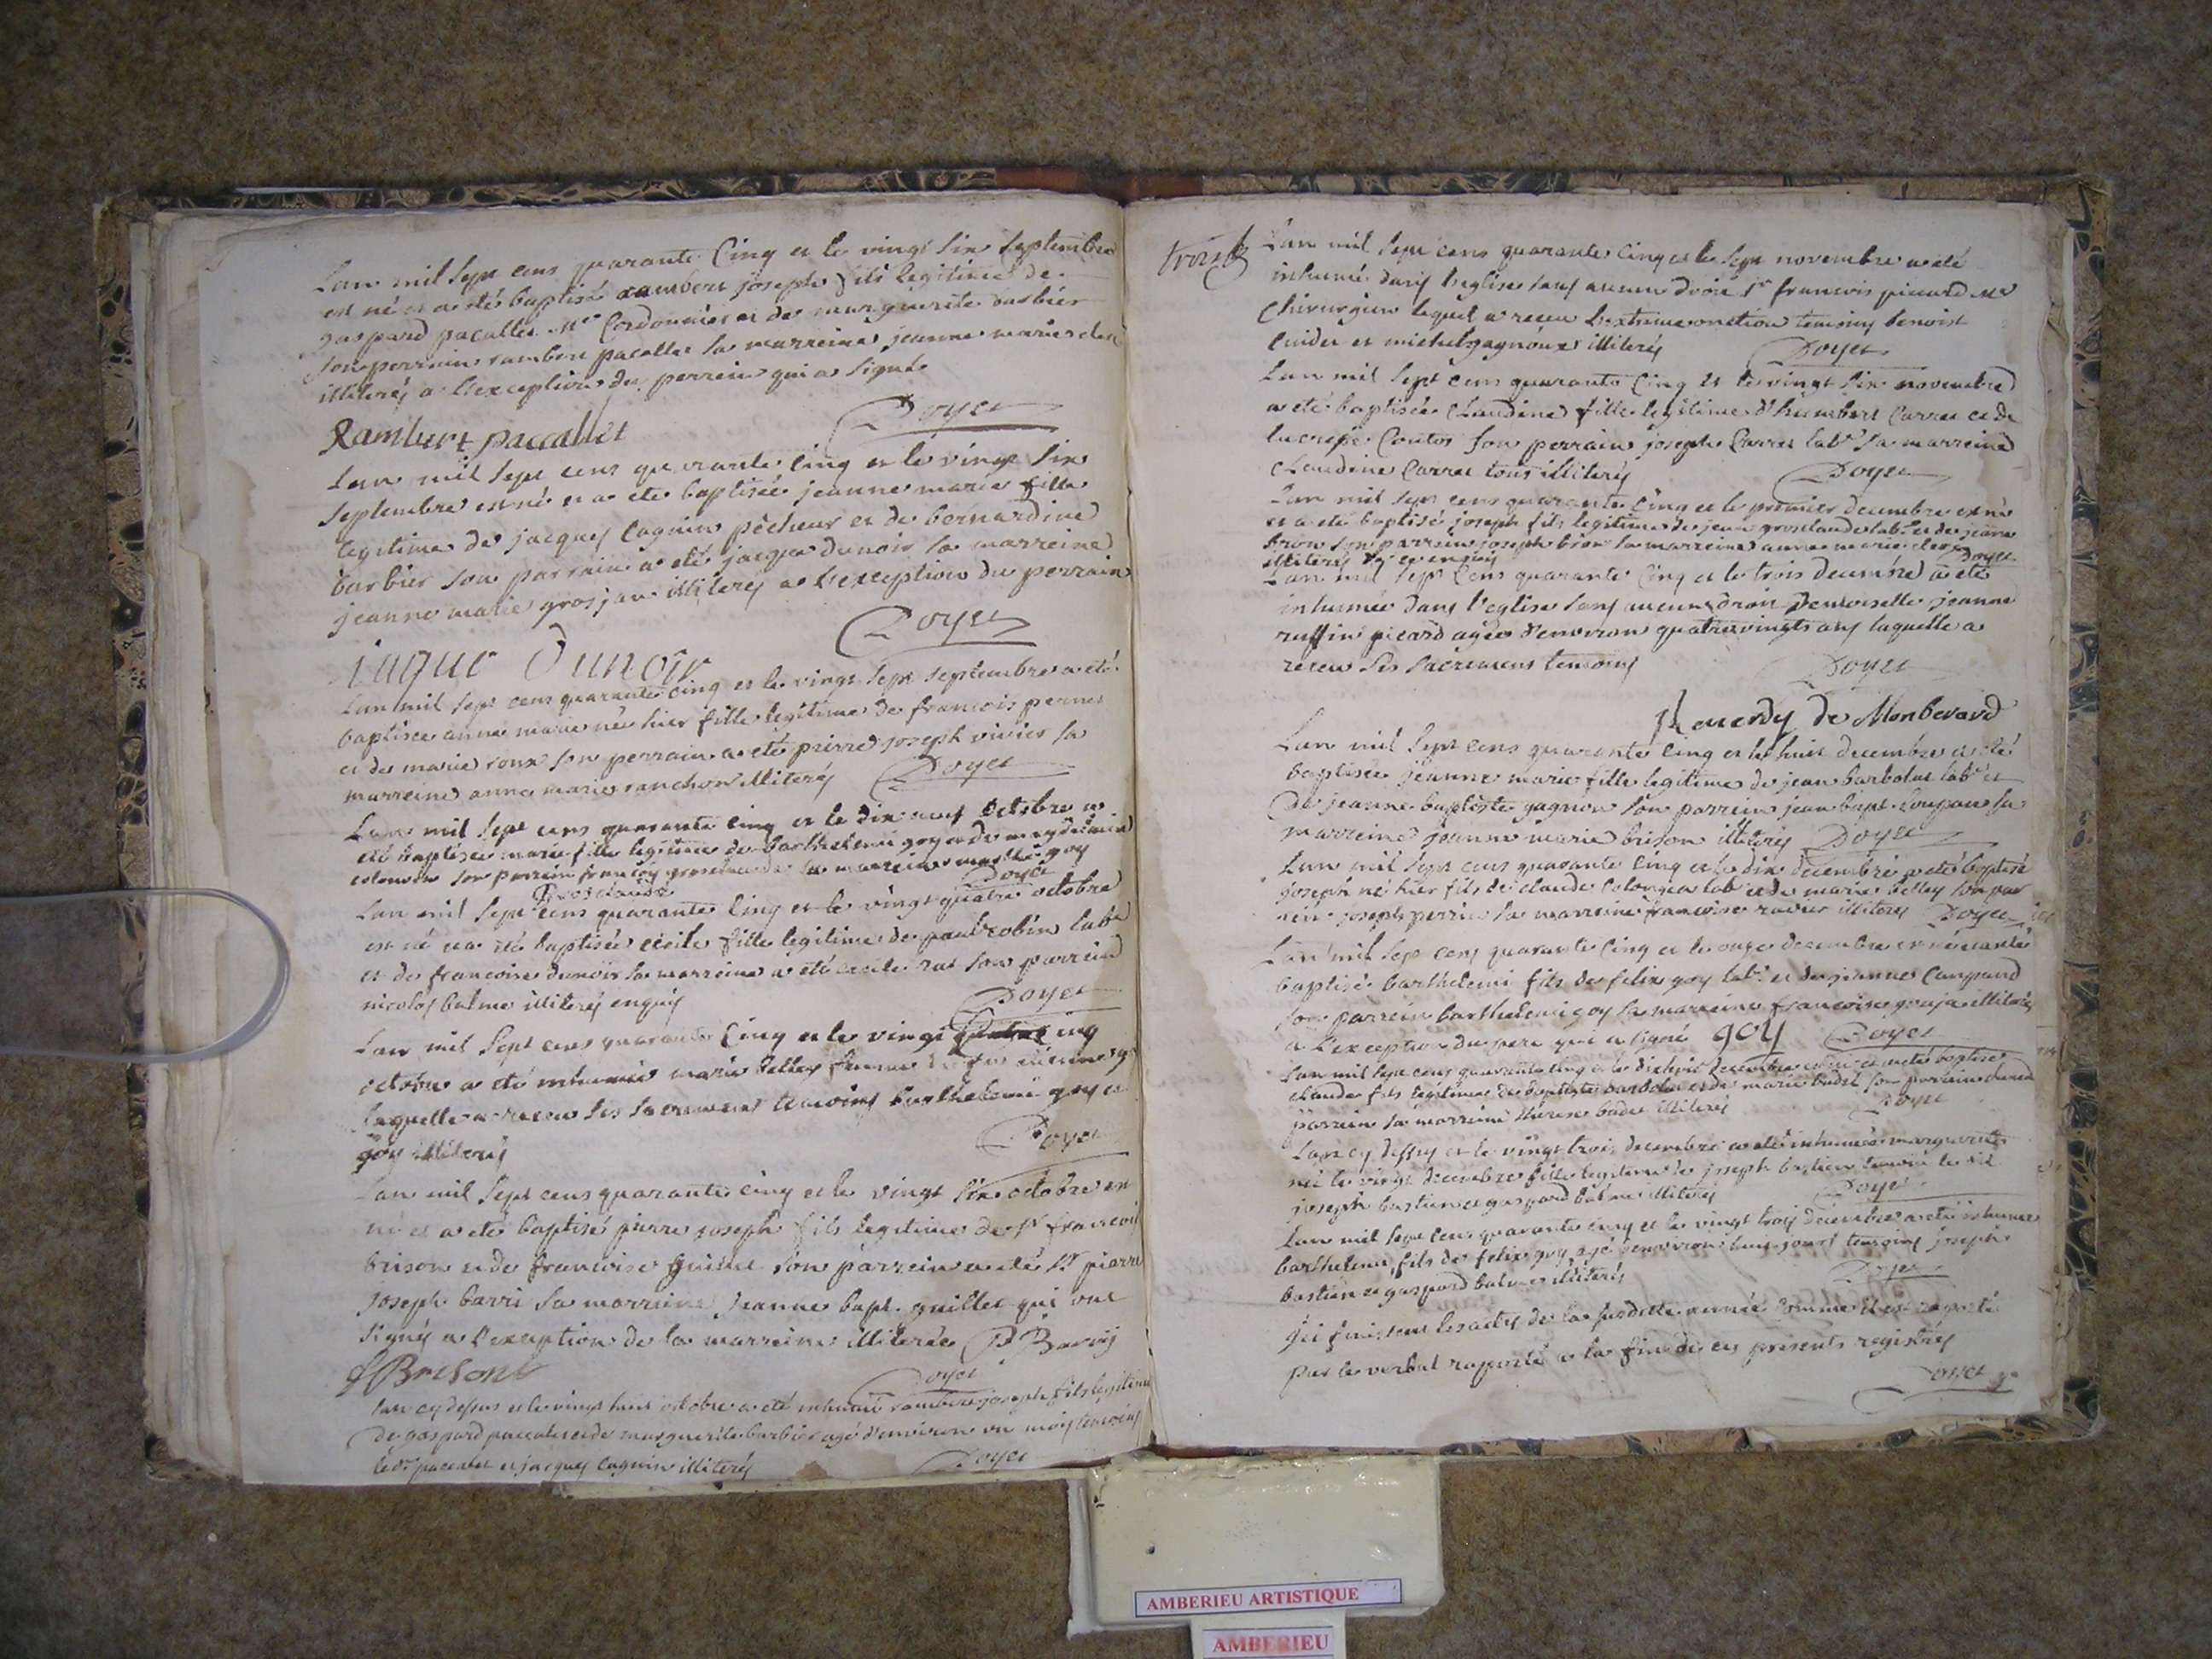 Lan mil sept cens quarante cinq et le vingt six septembre
est né et a eté baptisé rambert joseph fils legitime de
gaspard pacallet Me Cordonnier et de marguerite barbier
son perrain rambert pacallet la marreine jeanne marie
illiterés a l'exception du perrein qui a signé
Doyet
Rambert paccallet
Lan mil sept cens quarante cinq et le vingt six
septembre est né et a eté baptisée jeanne marie fille
legitime de jacques Cagnin pêcheur et de bernardine
barbier son parrain a eté jacque dunoir sa marreine
jeanne marie grosjan illiterés a l'exception du perrain
Doyet
jaque Dunoir
Lan mil sept cens quarante cinq et le vingt sept septembre a eté
baptisée anne marie née hier fille legitime de francois pernet
et de marie roux son perrain a eté pierre joseph vivier sa
marreine anne marie ranchon illiterés Doyet
Lan mil sept cens quarante cinq et le dix neuf octobre a
eté baptisée marie fille legitime de barthelemi goy et de
son perrein francois la marreine goy
Doyet
Lan mil sept cens quarante cinq et le vingt quatre octobre
est né et a eté baptisée cécile fille legitime de paul robin labr
et de francoise dunoir la marreine a eté cecile rat son parrein
nicolas balme illiterés enquis
Doyet
Lan mil sept cens quarante cinq et le vingt cinq
octobre a eté inhumée marie belley femme de
laquelle a receu ses sacremens temoins barthelemi goy et
goy illiterés
Doyet
Lan mil sept cens quarante cinq et le vingt six octobre est
né et a eté baptisé pierre joseph fils legitime de sr francois
brison et de francoise son parrein a eté sr pierre
joseph barri sa marreine jeanne bapt. guillet qui ont
signés a l'exception de la marreine illiterée P Barry
f Brison
Doyet
Lan cy dessus et le vingt huit octobre a eté inhumé rambert joseph fils legitime
de gaspard paccalet et de marguerite barbier agé d'environ un mois temoins
ledt paccalet et jacques cagnin illiterés
Doyet
trois
Lan mil sept cens quarante cinq et le sept novembre a eté
inhumé dans l'eglise sans aucun droit sr francois picard me
Chirurgien lequel a receu l'extreme onction temoins benoist
Cuidet et michel gagnoux illiterés
Doyet
Lan mil sept cens quarante cinq et le vingt six novembre
a eté baptisée Claudine fille legitime d'humbert Carret et de
lucresse Coutos son perrain joseph Carret labr sa marreine
Claudine Carret tous illiterés
Doyet
Lan mil sept cens quarante cinq et le premier decembre est né
et a eté baptisé joseph fils legitime de jean grosclaude labr et de jeanne
bron son parrein joseph bron la marreine anne marie
illiterés de ce enquis
Doyet
Lan mil sept cens quarante cinq et le trois decembre a eté
inhumée dans l'eglise sans aucun droit Demoiselle jeanne
ruffin picard agée d'environ quatre vingts ans laquelle a
receu ses sacremens temoins
Doyet
de Monbevard
Lan mil sept cens quarante cinq et le huit decembre a eté
baptisée jeanne marie fille legitime de jean barbolat labr et
de jeanne baptiste gagnon son parrein jean bapt. loupan sa
marreine jeanne marie brison illiterés Doyet
Lan mil sept cens quarante cinq et le dix decembre a eté baptisé
joseph né hier fils de claude Colonge labr et de marie belley son par
rein joseph perrin la marreine francoise ravier illiterés Doyet
Lan mil sept cens quarante cinq et le onze decembre est né et a eté
baptisé barthelemi fils de felix goy labr et de jeanne Campand
son parrein barthelemi goy la marreine francoise illiterés
a l'exception du pere qui a signé goy Doyet
Lan mil sept cens quarante cinq et le dixhuit decembre est né et a eté baptisé
claude fils legitime de baptiste barbolat et de marie son parrein claude
parrein la marreine therese illiterés
Doyet
Lan cy dessus et le vingt trois decembre a eté inhumée marguerite
née le vingt decembre fille legitime de joseph bastien temoin ledit
joseph bastien et gaspard balme illiterés
Doyet
Lan mil sept cens quarante cinq et le vingt trois decembre a eté inhumé
barthelemi fils de felix goy agé d'environ huit jours temoins joseph
bastien et gaspard balme illiterés
Doyet
Ici finissent les actes de la susditte année comme il est raporté
par le verbal raporté a la fin de ces presents registres
Doyet
AMBERIEU ARTISTIQUE
AMBERIEU